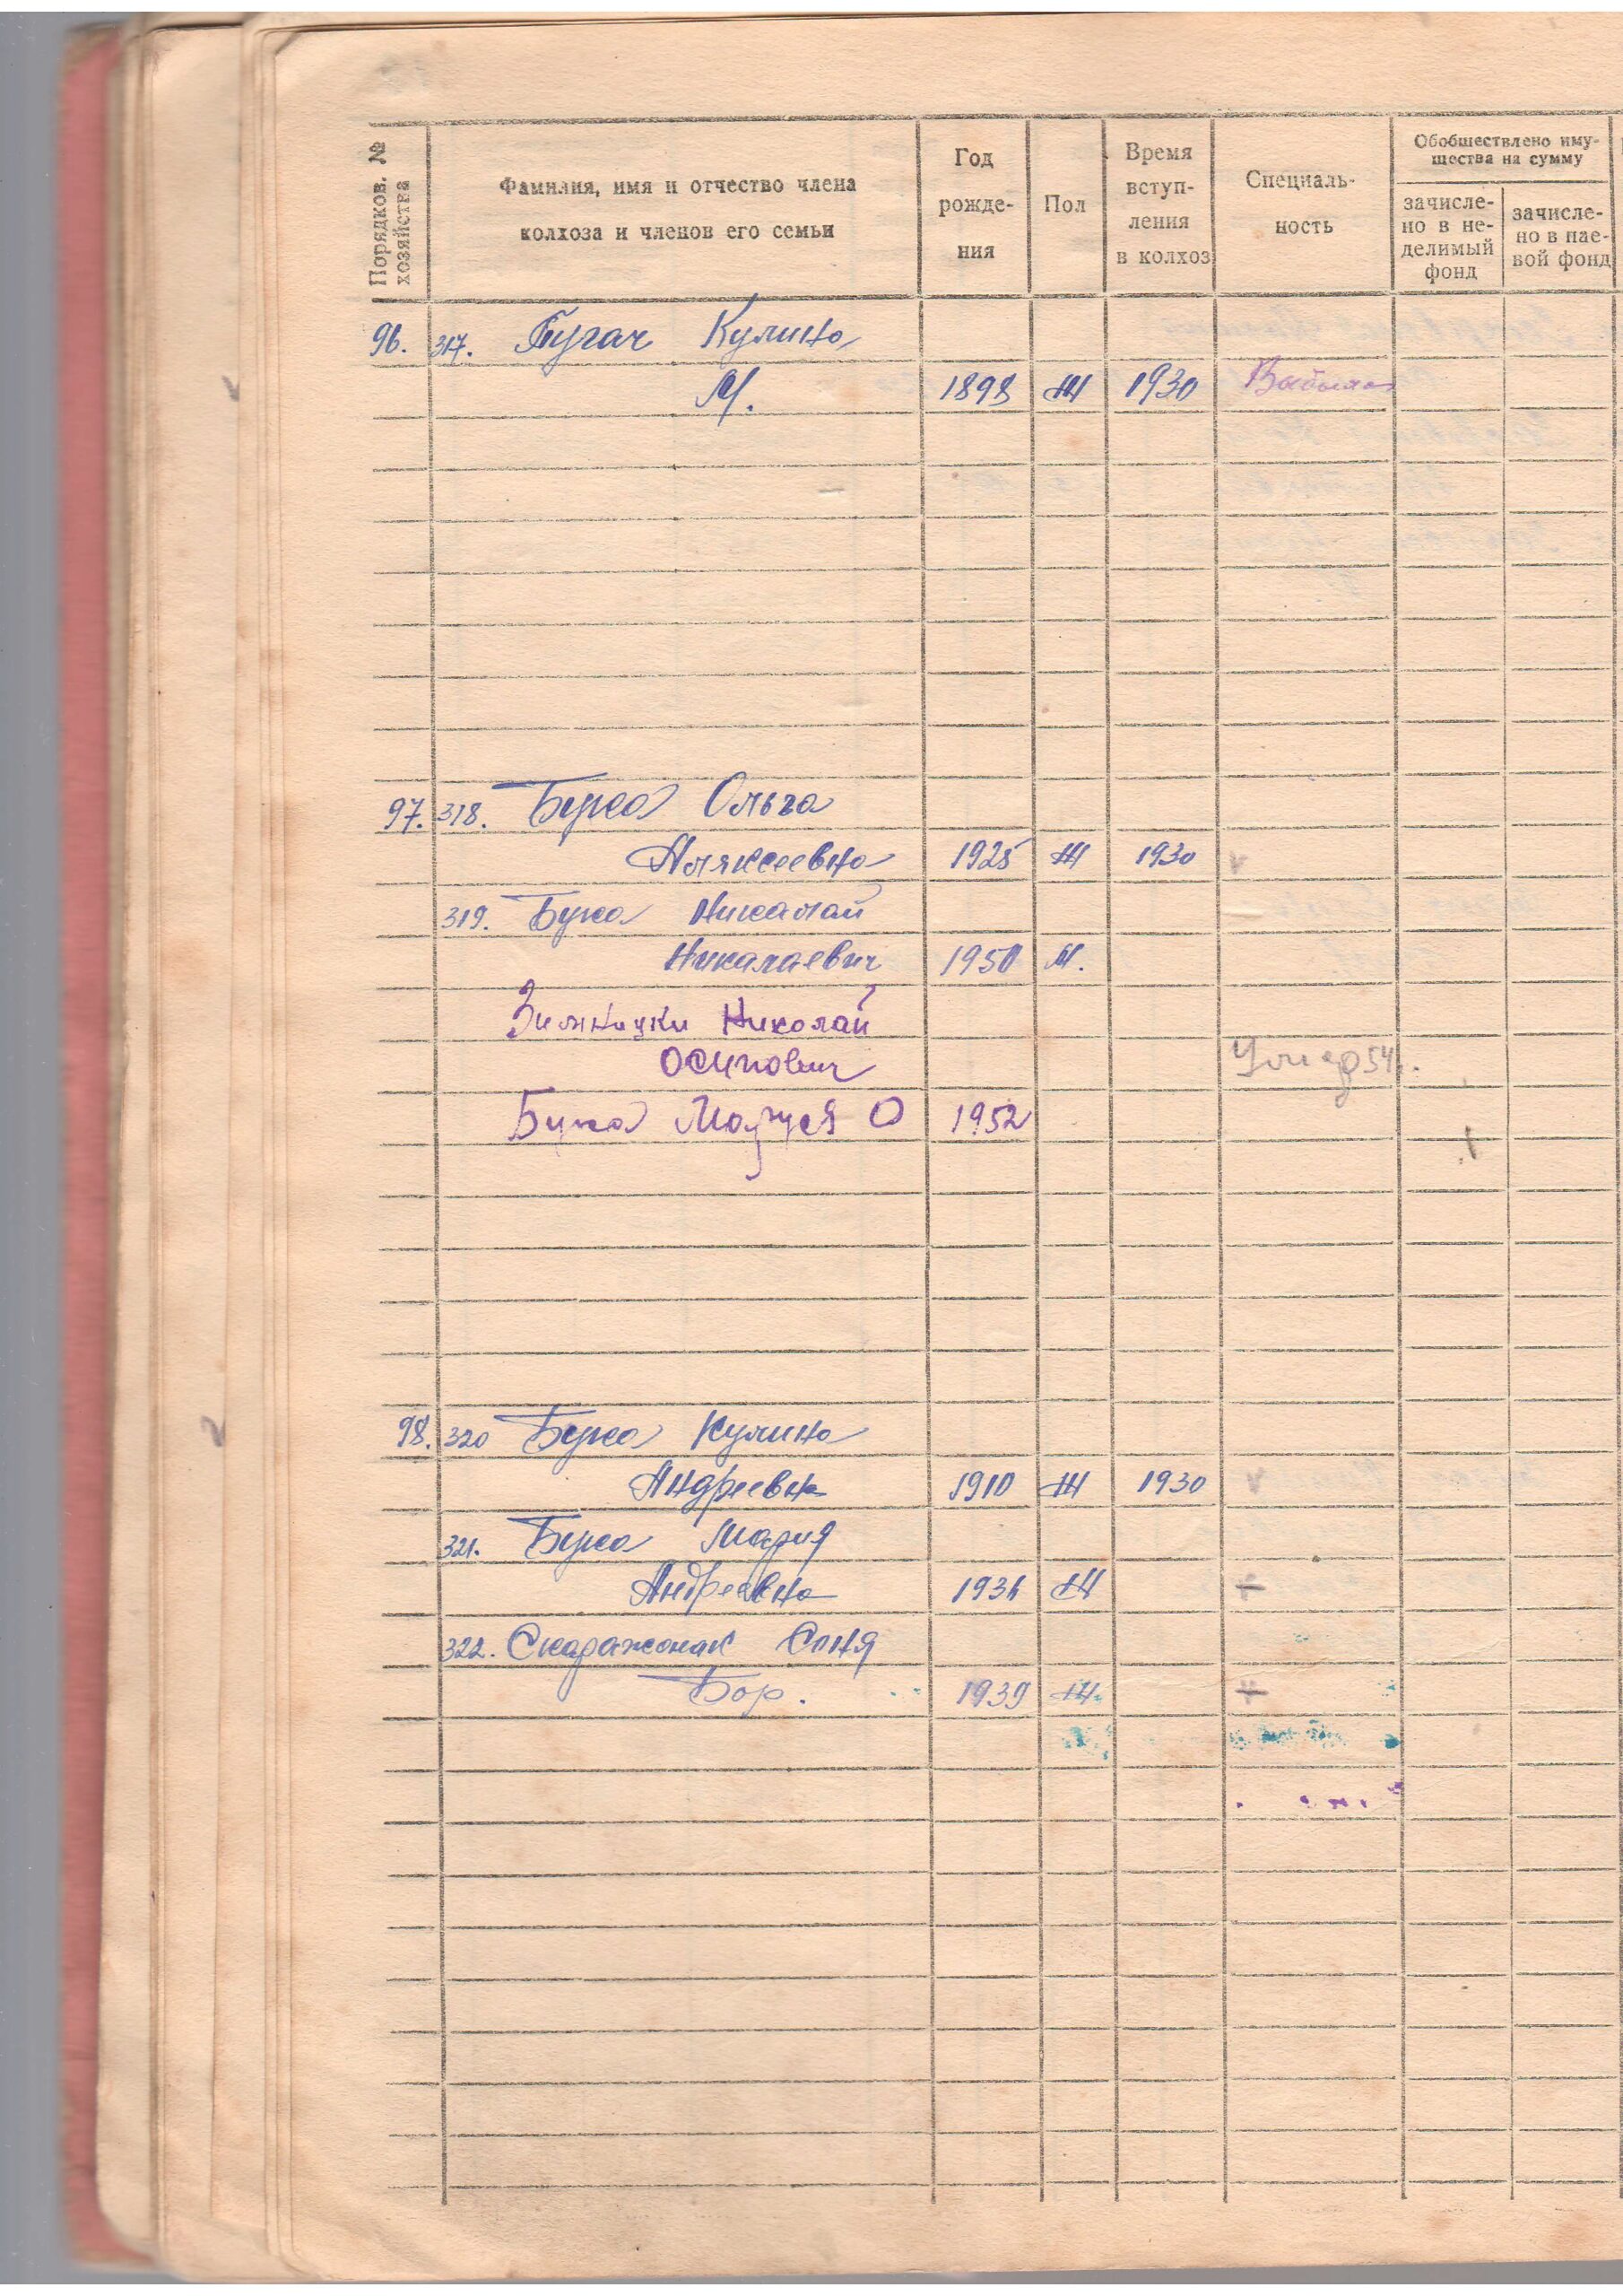 Порядков. № хозяйства
Фамилия, имя и отчество члена
колхоза и членов его семьи
Год рожде- ния
Пол
Время вступ- ления в колхоз
Специаль- ность
Обобществлено иму- щества на сумму
зачисле- но в не- делимый фонд
зачисле- но в пае- вой фонд
96. 317. Пугач Кулина
М. 1898 Ж 1930 Выбыла
97. 318. Бука Ольга
Аляксеевна 1925 Ж 1930
319. Бука Никалай
Никалаевич 1950 М.
Николай
Осипович 54.
Бука Маруся О 1952
98. 320 Бука Кулина
Андреевна 1910 Ж 1930
321. Бука Мария
Андреевна Ж
322. Скаражонак Соня
Бор. 1939 Ж